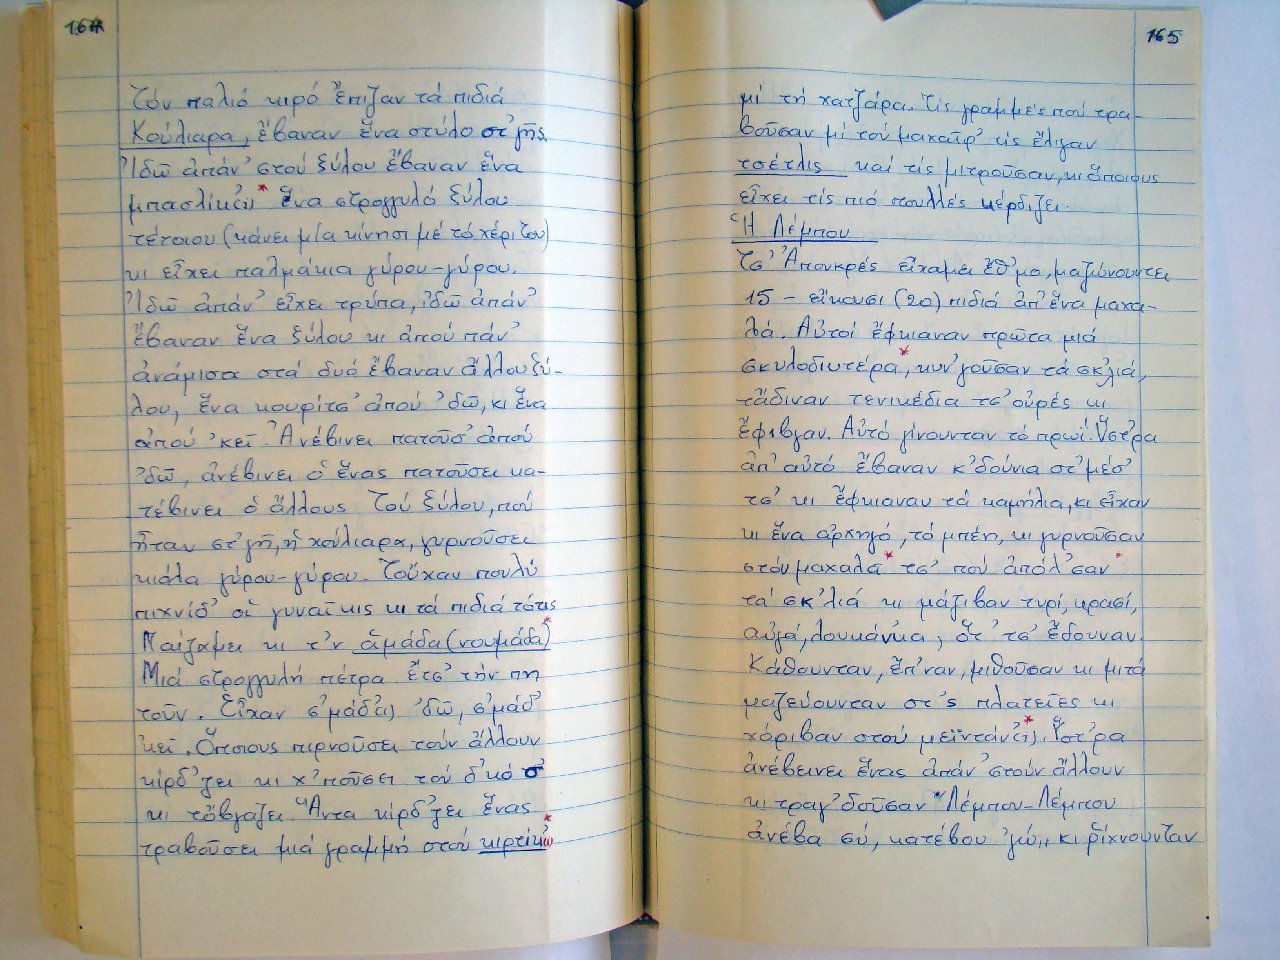 164
Τόν παλιό κιρό ἔπιζαν τά πιδιά
Κούλιαρα, ἔβαναν ἕνα στύλο στ' γῆς.
Ἰδῶ ἀπάν' στού ξύλου ἔβαναν ἕνα
μπασλίκ(ι)ού * ἕνα στρογγυλό ξύλου
τέτοιου (κάνει μία κίνησι μέ τό χέρι του)
κι εἶχει παλμάκια γύρου-γύρου.
Ἰδῶ ἀπάν' εἶχει τρύπα, ἰδῶ ἀπάν'
ἔβαναν ἕνα ξύλου κι ἀπού πάν'
ἀνάμισα στά δυό ἔβαναν ἄλλου ξύ-
λου, ἕνα κουρίτσ' ἀπού 'δῶ, κι ἕνα
ἀπού 'κεῖ. Ἀνέβινει πατοῦσ' ἀπού
'δῶ, ἀνέβινει ὁ ἕνας πατοῦσει κα-
τέβινει ὁ ἄλλους. Τού ξύλου, πού
ἦταν στ' γῆ, ἡ χούλιαρα, γυρνοῦσει
κιόλα γύρου-γύρου. Τοὔχαν πουλύ
πιχνίδ' οἱ γυναῖκις κι τά πιδιά τότις
Παίζαμει κι τ'ν ἀμάδα (νουμάδα) *
Μιά στρογγυλή πέτρα ἔτσ' τήν πη
τοῦν. Εἶχαν σ'μάδ(ι) 'δῶ, σ'μάδ'
'κεῖ. Ὅποιους πιρνοῦσει τούν ἄλλουν
κίρδ'ζει κι χ'ποῦσει τού δ'κό σ'
κι τὄβγαζει. Ἅντα κίρδ'ζει ἕνας
τραβοῦσει μιά γραμμή στού κιρτίκ(ι) *
165
μί τή χατζάρα. Τίς γραμμές πού τρα-
βοῦσαν μί τού μαχαῖρ' τίς ἔλιγαν
τσέτλις καί τίς μιτροῦσαν, κι ὅποιους
εἶχει τίς πιό πουλλές κέρδιζει.
Ἡ Λέμπου
Τσ' Ἀπουκρές εἴχαμει ἔθ'μο, μαζώνουντει
15 - εἴκουσι (20) πιδιά ἀπ' ἕνα μαχα-
λά. Αὐτοί ἔφκιαναν πρῶτα μιά
σκυλοδιυτέρα *, κυν'γοῦσαν τά σκ'λιά,
τἄδιναν τενικέδια τσ' οὐρές κι
ἔφιβγαν. Αὐτό γίνουνταν τό πρωί. Ὕστ'ρα
ἀπ' αὐτό ἔβαναν κ'δούνια στ' μέσ'
τσ' κι ἔφκιαναν τά καμήλια, κι εἶχαν
κι ἕνα ἀρχηγό, τό μπέη, κι γυρνοῦσαν
στόν μαχαλά * τσ' πού ἀπόλ'σαν *
τά σκ'λιά κι μάζιβαν τυρί, κρασί,
αὐγά, λουκάν'κα, ὅτ' τσ' ἔδουναν.
Κάθουνταν, ἔπ'ναν, μιθοῦσαν κι μιτά
μαζεύουνταν στ'ς πλατεῖες κι
χόριβαν στού μεϊντάν(ι) *. Ὕστ'ρα
ἀνέβεινει ἕνας ἀπάν' στούν ἄλλουν
κι τραγ'δοῦσαν "Λέμπου-Λέμπου
ἀνέβα σύ, κατέβου 'γώ,, κι ρίχνουνταν